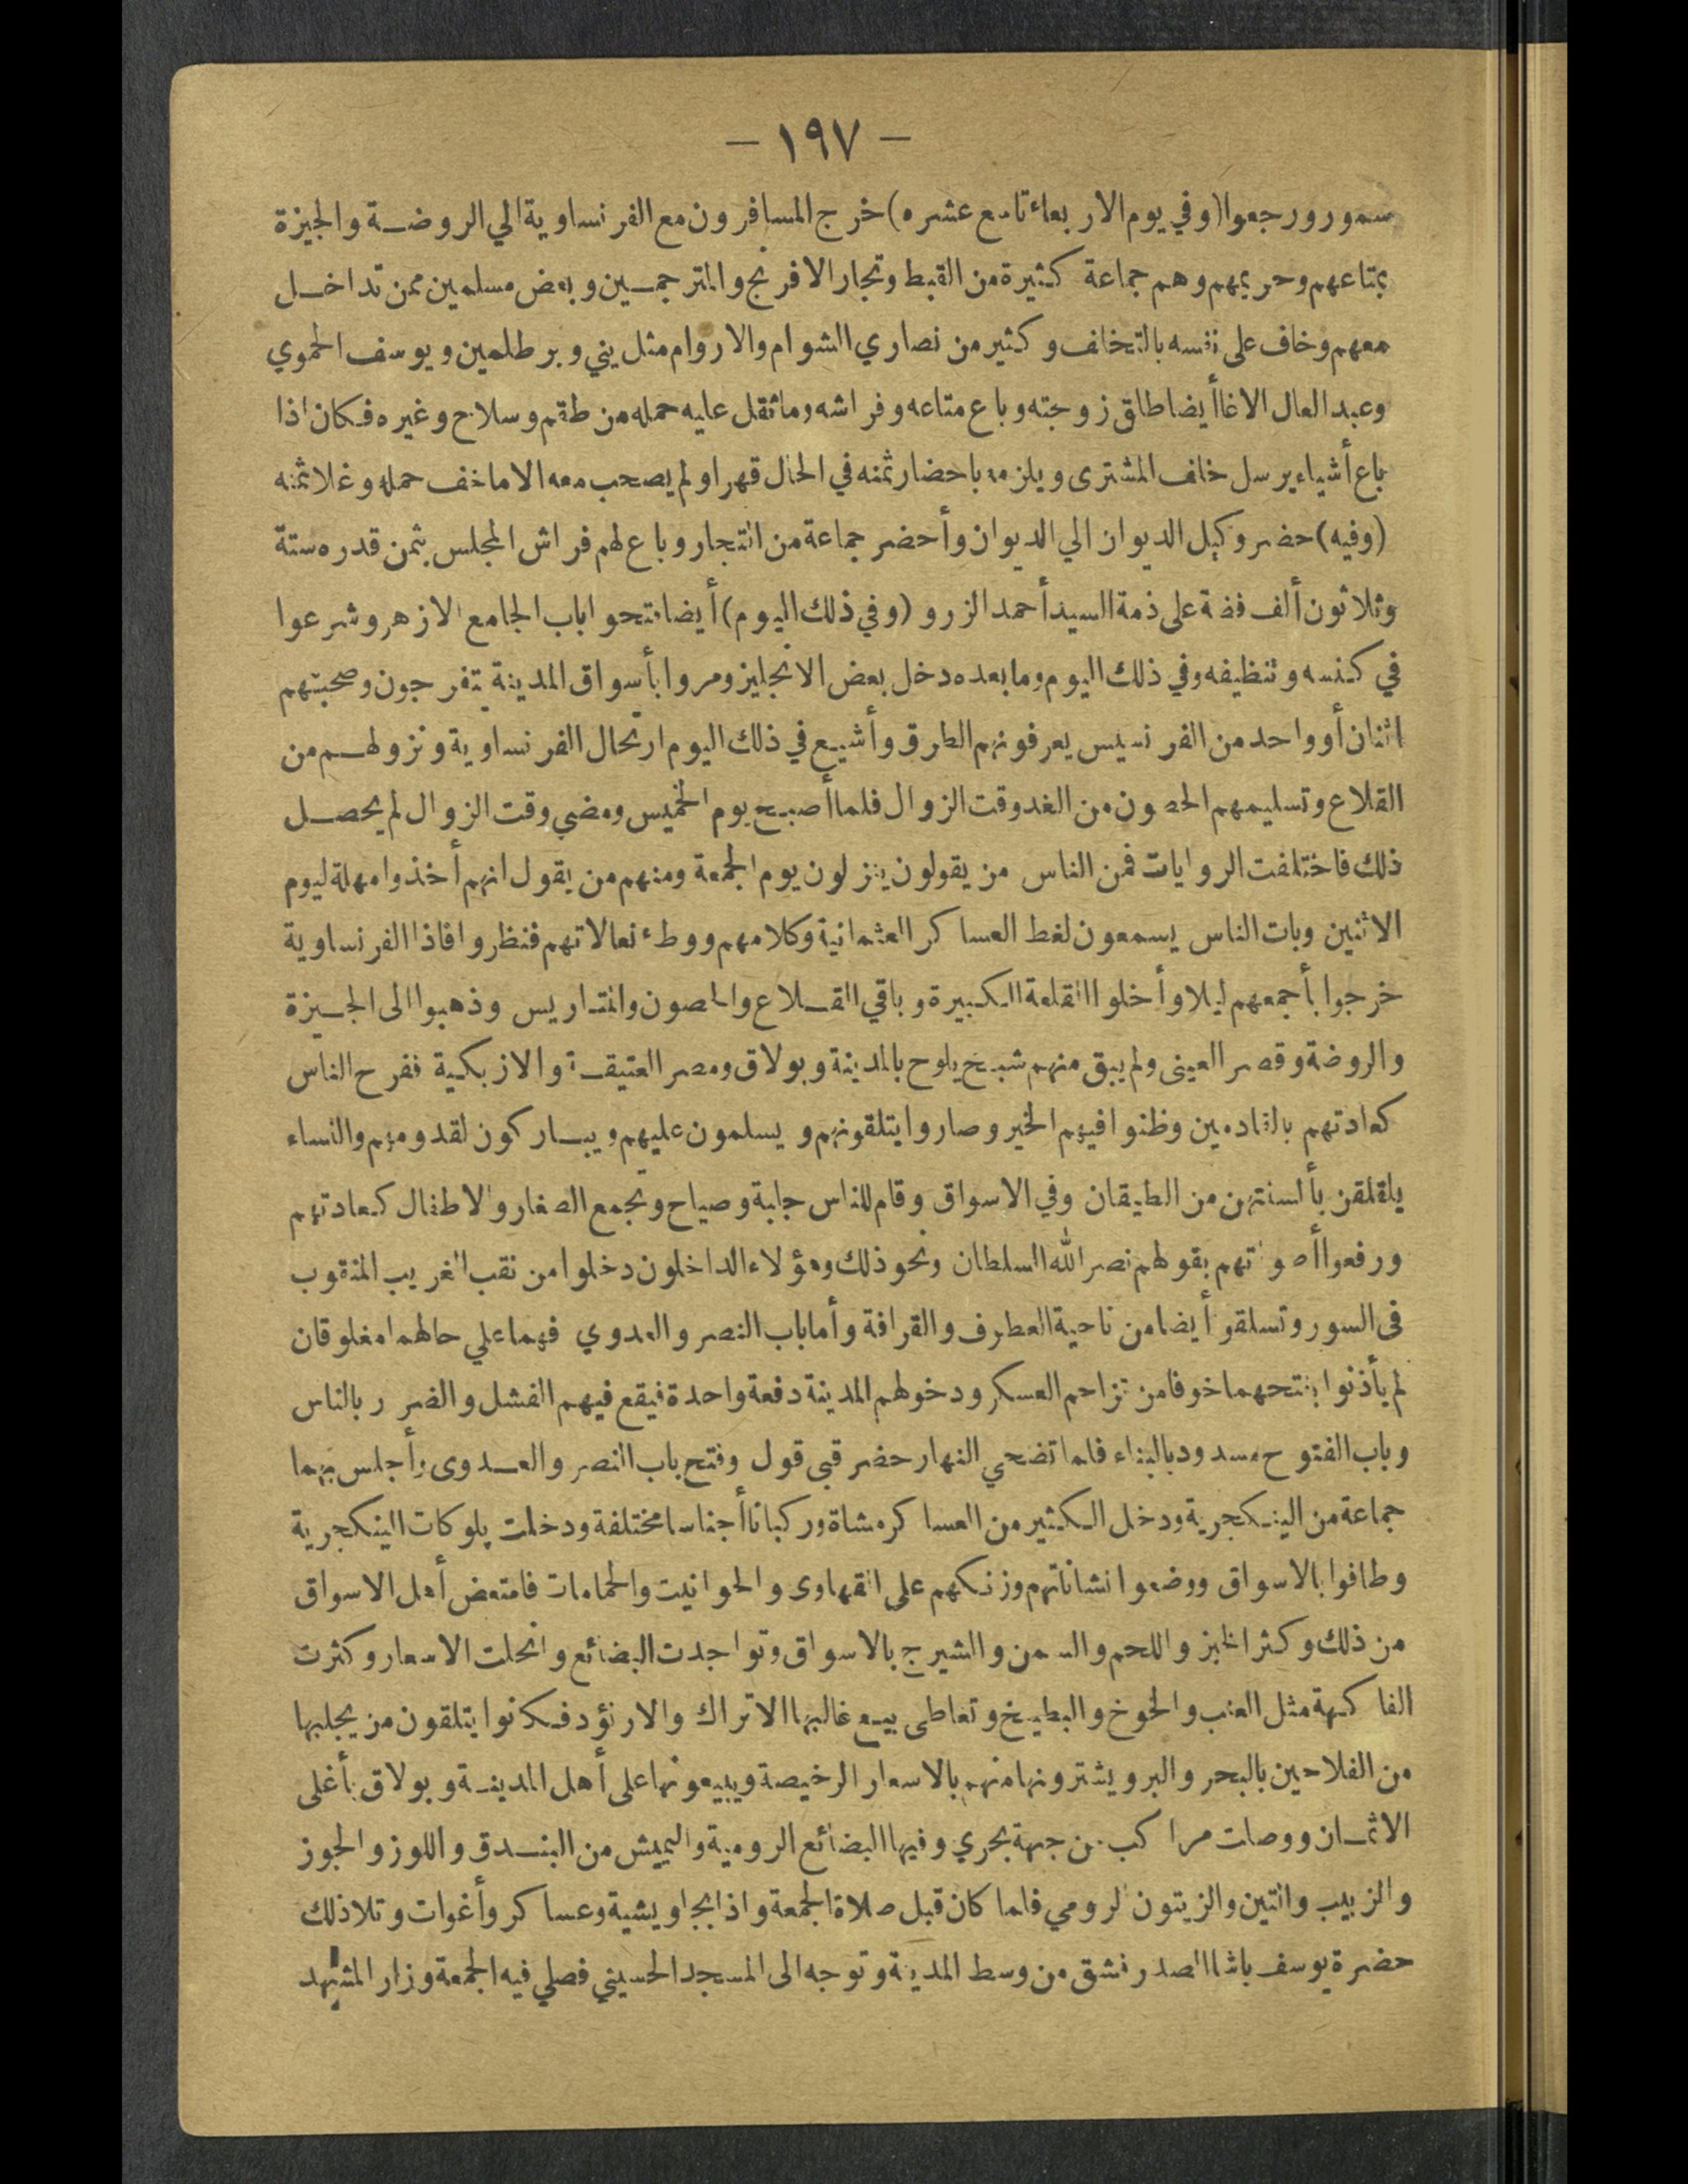 — ١٩٧ —
سمور ورجعوا (وفي يوم الاربعاء تاسع عشره) خرج المسافرون مع الفرنساوية الي الروضة والجيزة
بمتاعهم وحريمهم وهم جماعة كثيرة من القبط وتجار الافرنج والمترجمين وبعض مسلمين ممن تداخل
معهم وخاف على نفسه بالتخلف وكثير من نصاري الشوام والاروام مثل يني وبرطلمين ويوسف الحموي
وعبد العال الاغا أيضا طلق زوجته وباع متاعه وفراشه وما ثقل عليه حمله من طقم وسلاح وغيره فكان اذا
باع أشياء يرسل خلف المشترى ويلزمه باحضار ثمنه في الحال قهرا ولم يصحب معه الا ما خف حمله وغلا ثمنه
(وفيه) حضر وكيل الديوان الي الديوان وأحضر جماعة من التجار وباع لهم فراش المجلس بثمن قدره ستة
وثلاثون ألف فضة على ذمة السيد أحمد الزرو (وفي ذلك اليوم) أيضا فتحوا باب الجامع الازهر وشرعوا
في كنسه وتنظيفه وفي ذلك اليوم وما بعده دخل بعض الانجليز ومروا بأسواق المدينة يتفرجون وصحبتهم
اثنان أو واحد من الفرنسيس يعرفونهم الطرق وأشيع في ذلك اليوم ارتحال الفرنساوية ونزولهم من
القلاع وتسليمهم الحصون من الغد وقت الزوال فلما أصبح يوم الخميس ومضي وقت الزوال لم يحصل
ذلك فاختلفت الروايات فمن الناس من يقولون ينزلون يوم الجمعة ومنهم من يقول انهم أخذوا مهلة ليوم
الاثنين وبات الناس يسمعون لغط العساكر العثمانية وكلامهم ووطء نعالاتهم فنظروا فاذا الفرنساوية
خرجوا بأجمعهم ليلا وأخلوا القلعة الكبيرة وباقي القلاع والحصون والمتاريس وذهبوا الى الجيزة
والروضة وقصر العينى ولم يبق منهم شبح يلوح بالمدينة وبولاق ومصر العتيقة والازبكية ففرح الناس
كعادتهم بالقادمين وظنوا فيهم الخير وصاروا يتلقونهم ويسلمون عليهم ويباركون لقدومهم والنساء
يلقلقن بألسنتهن من الطيقان وفي الاسواق وقام للناس جلبة وصياح وتجمع الصغار والاطفال كعادتهم
ورفعوا أصواتهم بقولهم نصر الله السلطان ونحو ذلك وهؤلاء الداخلون دخلوا من نقب الغريب المنقوب
فى السور وتسلقوا أيضا من ناحية العطوف والقرافة وأما باب النصر والعدوي فهما علي حالهما مغلوقان
لم يأذنوا بفتحهما خوفا من تزاحم العسكر ودخولهم المدينة دفعة واحدة فيقع فيهم الفشل والضرر بالناس
وباب الفتوح مسدود بالبناء فلما تضحي النهار حضر قبى قول وفتح باب النصر والعدوى وأجلس بهما
جماعة من الينكجرية ودخل الكثير من العساكر مشاة وركبانا أجناسا مختلفة ودخلت بلوكات الينكجرية
وطافوا بالاسواق ووضعوا نشاناتهم وزنكهم على القهاوى والحوانيت والحمامات فامتعض أهل الاسواق
من ذلك وكثر الخبز واللحم والسمن والشيرج بالاسواق وتواجدت البضائع وانحلت الاسعار وكثرت
الفاكهة مثل العنب والخوخ والبطيخ وتعاطى بيع غالبها الاتراك والارنؤد فكانوا يتلقون من يجلبها
من الفلاحين بالبحر والبر ويشترونها منهم بالاسعار الرخيصة ويبيعونها على أهل المدينة وبولاق بأغلى
الاثمان ووصلت مراكب من جهة بحري وفيها البضائع الرومية واليميش من البندق واللوز والجوز
والزبيب والتين والزيتون الرومي فلما كان قبل صلاة الجمعة واذا بجاويشية وعساكر وأغوات وتلا ذلك
حضرة يوسف باشا الصدر فشق من وسط المدينة وتوجه الى المسجد الحسيني فصلي فيه الجمعة وزار المشهد